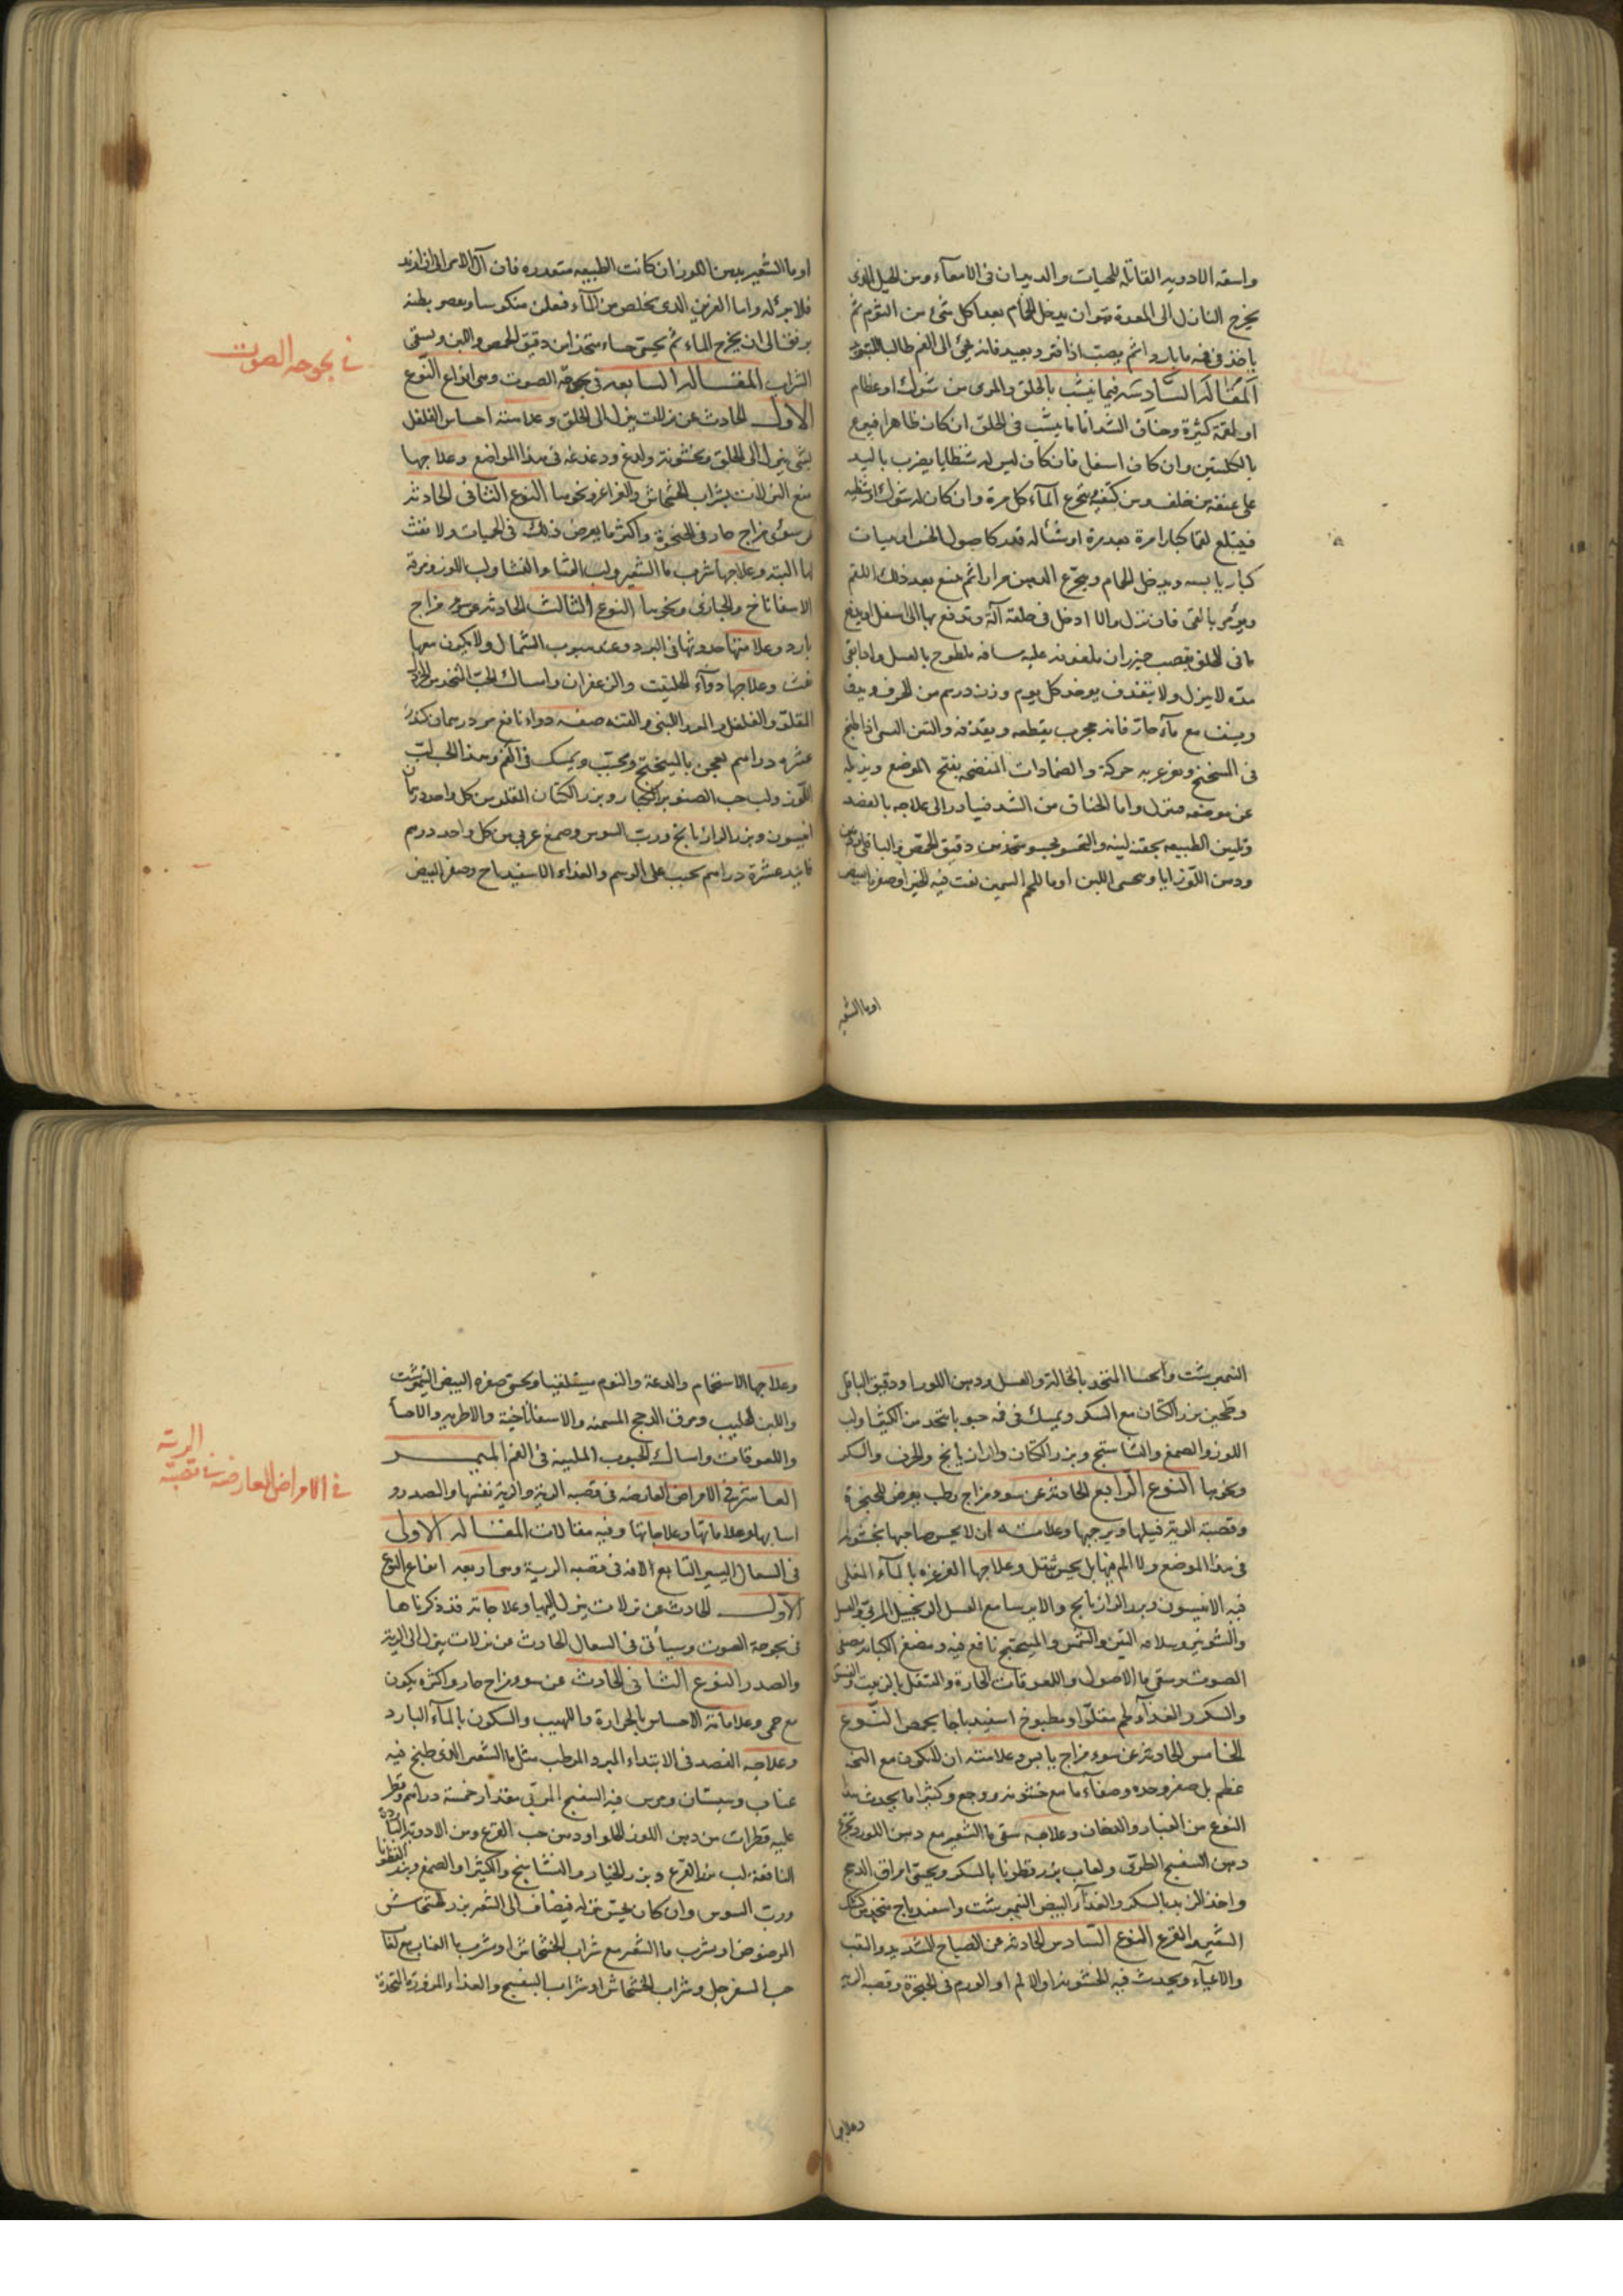 واسقه الادويه القاتله للحيات والديدان فى الامعآء ومن الحيل الذى
يخرج النازل الى المعدة هو ان يدخل الحمام بعد اكل شئ من الثوم ثم
ياخذ فى فمه ما باردا ثم يصب اذا فتر ويعيد فانه يجئ الى الفم طالبا للتبريد
المقالة السادسه فيما ينشب بالحلق والمرى من شوك او عظام
او لقمة كثيرة وخناق الشد اما ما ينشب فى الحلق ان كان ظاهرا فينزع
بالكلبتين وان كان اسفل فان كان ليس له شظايا يضرب باليد
على عنقه من خلف وبين كتفيه يتجرع المآء كل مرة وان كان له شوك او شظيه
فيبتلع لقما كبارا مرة بعد مرة
كبار يابسه ويدخل الحمام ويتجرع الدهن مرارا ثم يمنع بعد ذلك اللقم
ويؤمر بالقئ فان نزل والا ادخل فى حلقه آلة وتدفع بها الى اسفل
ما فى الحلق بقصب خيزران ملفوفه عليه ملطوخ بالعسل واذا بقى
مدة لا ينزل ولا يتقذف يوخذ كل يوم وزن درهم من الحرف ويدق
ويسف مع مآء حار فانه مجرب يقطعه ويقذفه والتين اذا طبخ
فى الميفختج وتغرغر به حركة والضمادات المنضجه يفتح الموضع ويزيله
عن موضعه فينزل واما الخناق من الشد فيبادر الى علاجه بالفصد
وتليين الطبيعه بحقنه لينه والتحسو بحسو متخذ من دقيق الحمص والباقلى
ودهن اللوز اياما ويحسى اللبن او ما اللحم السمين نقت فيه الخبز او صفره البيض
او ما الشعير
او ما الشعير بدهن اللوز ان كانت الطبيعه متعذره فان آل الامر الى ان ازبد
فلا برء له واما الغريق الذى يخلص من المآء فيعلق منكوسا ويعصر بطنه
برفق الى ان يخرج الماء ثم يحسى حساء متخذا من دقيق الحمص واللبن ويسقى
الشراب المقاله السابعه فى بحوحة الصوت وهى انواع النوع
الاول الحادث عن نزلات ينزل الى الحلق وعلامته احساس الفلفل
بشئ ينزل الى الحلق وخشونة ولدغ ودغدغه فى هذا المواضع وعلاجها
منع النزلات بشراب الخشخاش والغراغر ونحوها النوع الثانى الحادثه
من سوء مزاج حار فى الحنجرة واكثر ما يعرض ذلك فى الحميات ولا نفث
لها البته وعلاجها شرب ما الشعير ولب القثا والنشا ولب اللوز ومرقة
الاسفاناخ والخبازى ونحوها النوع الثالث الحادثه عن سوء مزاج
بارد وعلامتها حدوثها فى البرد وعند هبوب الشمال ولا يكون معها
نفث وعلاجها دوآء الحلتيت والزعفران وامساك الحب المتخذ من الخردل
المقلو والفلفل والمر واللبنى والقنه صفة دواء نافع مر درهمان كندر
عشره دراهم يعجن بالميفختج ويحبب ويمسك فى الفم وهذا الحب لب
اللوز ولب حب الصنوبر الكبار وبزر الكتان المقلو من كل واحد درهمان
انيسون وبزر الرازيانج ورب السوس وصمغ عربى من كل واحد درهم
فانيد عشرة دراهم يحبب على الرسم والغذاء الاسفيداج وصفر البيض
فى بحوحه الصوت
النيمبرشت والحسا المتخذ بالنخالة والعسل ودهن اللوز او دقيق الباقلى
وطحين بزر الكتان مع السكر ويمسك فى فمه حبوبا تتخذ من الكثيرا ولب
اللوز والصمغ والنشاستج وبزر الكتان والرازيانج والحرف والسكر
ونحوها النوع الرابع الحادثه عن سوء مزاج رطب يعرض للحنجرة
وقصبة الرية فيبلها ويرخيها وعلامته ان لا يحس صاحبها بخشونه
فى هذا الموضع ولا الم فيها بل يحس بثقل وعلاجها الغرغره بالمآء المغلى
فيه الانيسون وبزر الرازيانج والايرسا مع العسل الزنجبيل المربى والعسل
والشونيز وسلاقه التين والتمر والميفختج نافع فيه ومضغ الكبابه يصفى
الصوت وسقى ما الاصول واللعوقات الحارة والتنقل بالزبيب والفستق
والسكر والغذآء لحم مقلوا ومطبوخ اسفيدباجا بحمص النوع
الخامس الحادثه عن سوء مزاج يابس وعلامته ان لا يكون مع البحة
عظم بل صغر وحده وصفآء ما مع خشونه ووجع وكثيرا ما يحدث هذا
النوع من الغبار والدخان وعلاجه سقى ما الشعير مع دهن اللوز وتجرع
دهن البنفسج الطرى ولعاب بزر قطونا بالسكر ويحسى امراق الدجج
واخذ الزبد بالسكر والغذآء البيض النيمبرشت واسفيدباج متخذ من كشك
الشعير والقرع النوع السادس الحادثه من الصياح الشديد والتعب
والاعيآء ويحدث فيه الخشونه او الالم او الورم فى الحنجرة وقصبه الريه
وعلاجها
وعلاجها الاستحمام والدعة والنوم مستلقيا وتحسى صفره البيض النيمبرشت
واللبن الحليب ومرق الدجج المسمنه والاسفاناخية والاطريه والاحسآ
واللعوقات وامساك الحبوب الملينه فى الفم الميمر
العاشر فى الامراض العارضه فى قصبه الرية والرية نفسها والصدر و
اسبابها وعلاماتها وعلاجاتها وفيه مقالات المقاله الاولى
فى السعال اليسير التابع لافه فى قصبه الرية وهى اربعه انواع النوع
الاول الحادث عن نزلات ينزل اليها وعلاجاته قد ذكرناها
فى بحوحة الصوت وسياتى فى السعال الحادث من نزلات ينزل الى الرية
والصدر النوع الثانى الحادث من سوء مزاج حار واكثره يكون
مع حمى وعلاماته الاحساس بالحرارة واللهيب والسكون بالمآء البارد
وعلاجه الفصد فى الابتداء المبرد المرطب مثل ما الشعير الذى طبخ فيه
عناب وسبستان ومرس فيه البنفسج المربى مقدار خمسة دراهم وقطر
عليه قطرات من دهن اللوز الحلو او دهن حب القرع ومن الادوية الباردة
النافعة لب بزر القرع وبزر الخيار والنشاستج والكثيرا والصمغ وبزر القطونا
ورب السوس وان كان يحس بنزله فيضاف الى الشعير بزر الخشخاش
المرضوض او يشرب ما الشعير مع شراب الخشخاش او شرب ما العناب مع لعاب
حب السفرجل وشراب الخشخاش او شراب البنفسج والغذاء المزورة المتخذة
فى الامراض العارضه فى قصبة
الرية